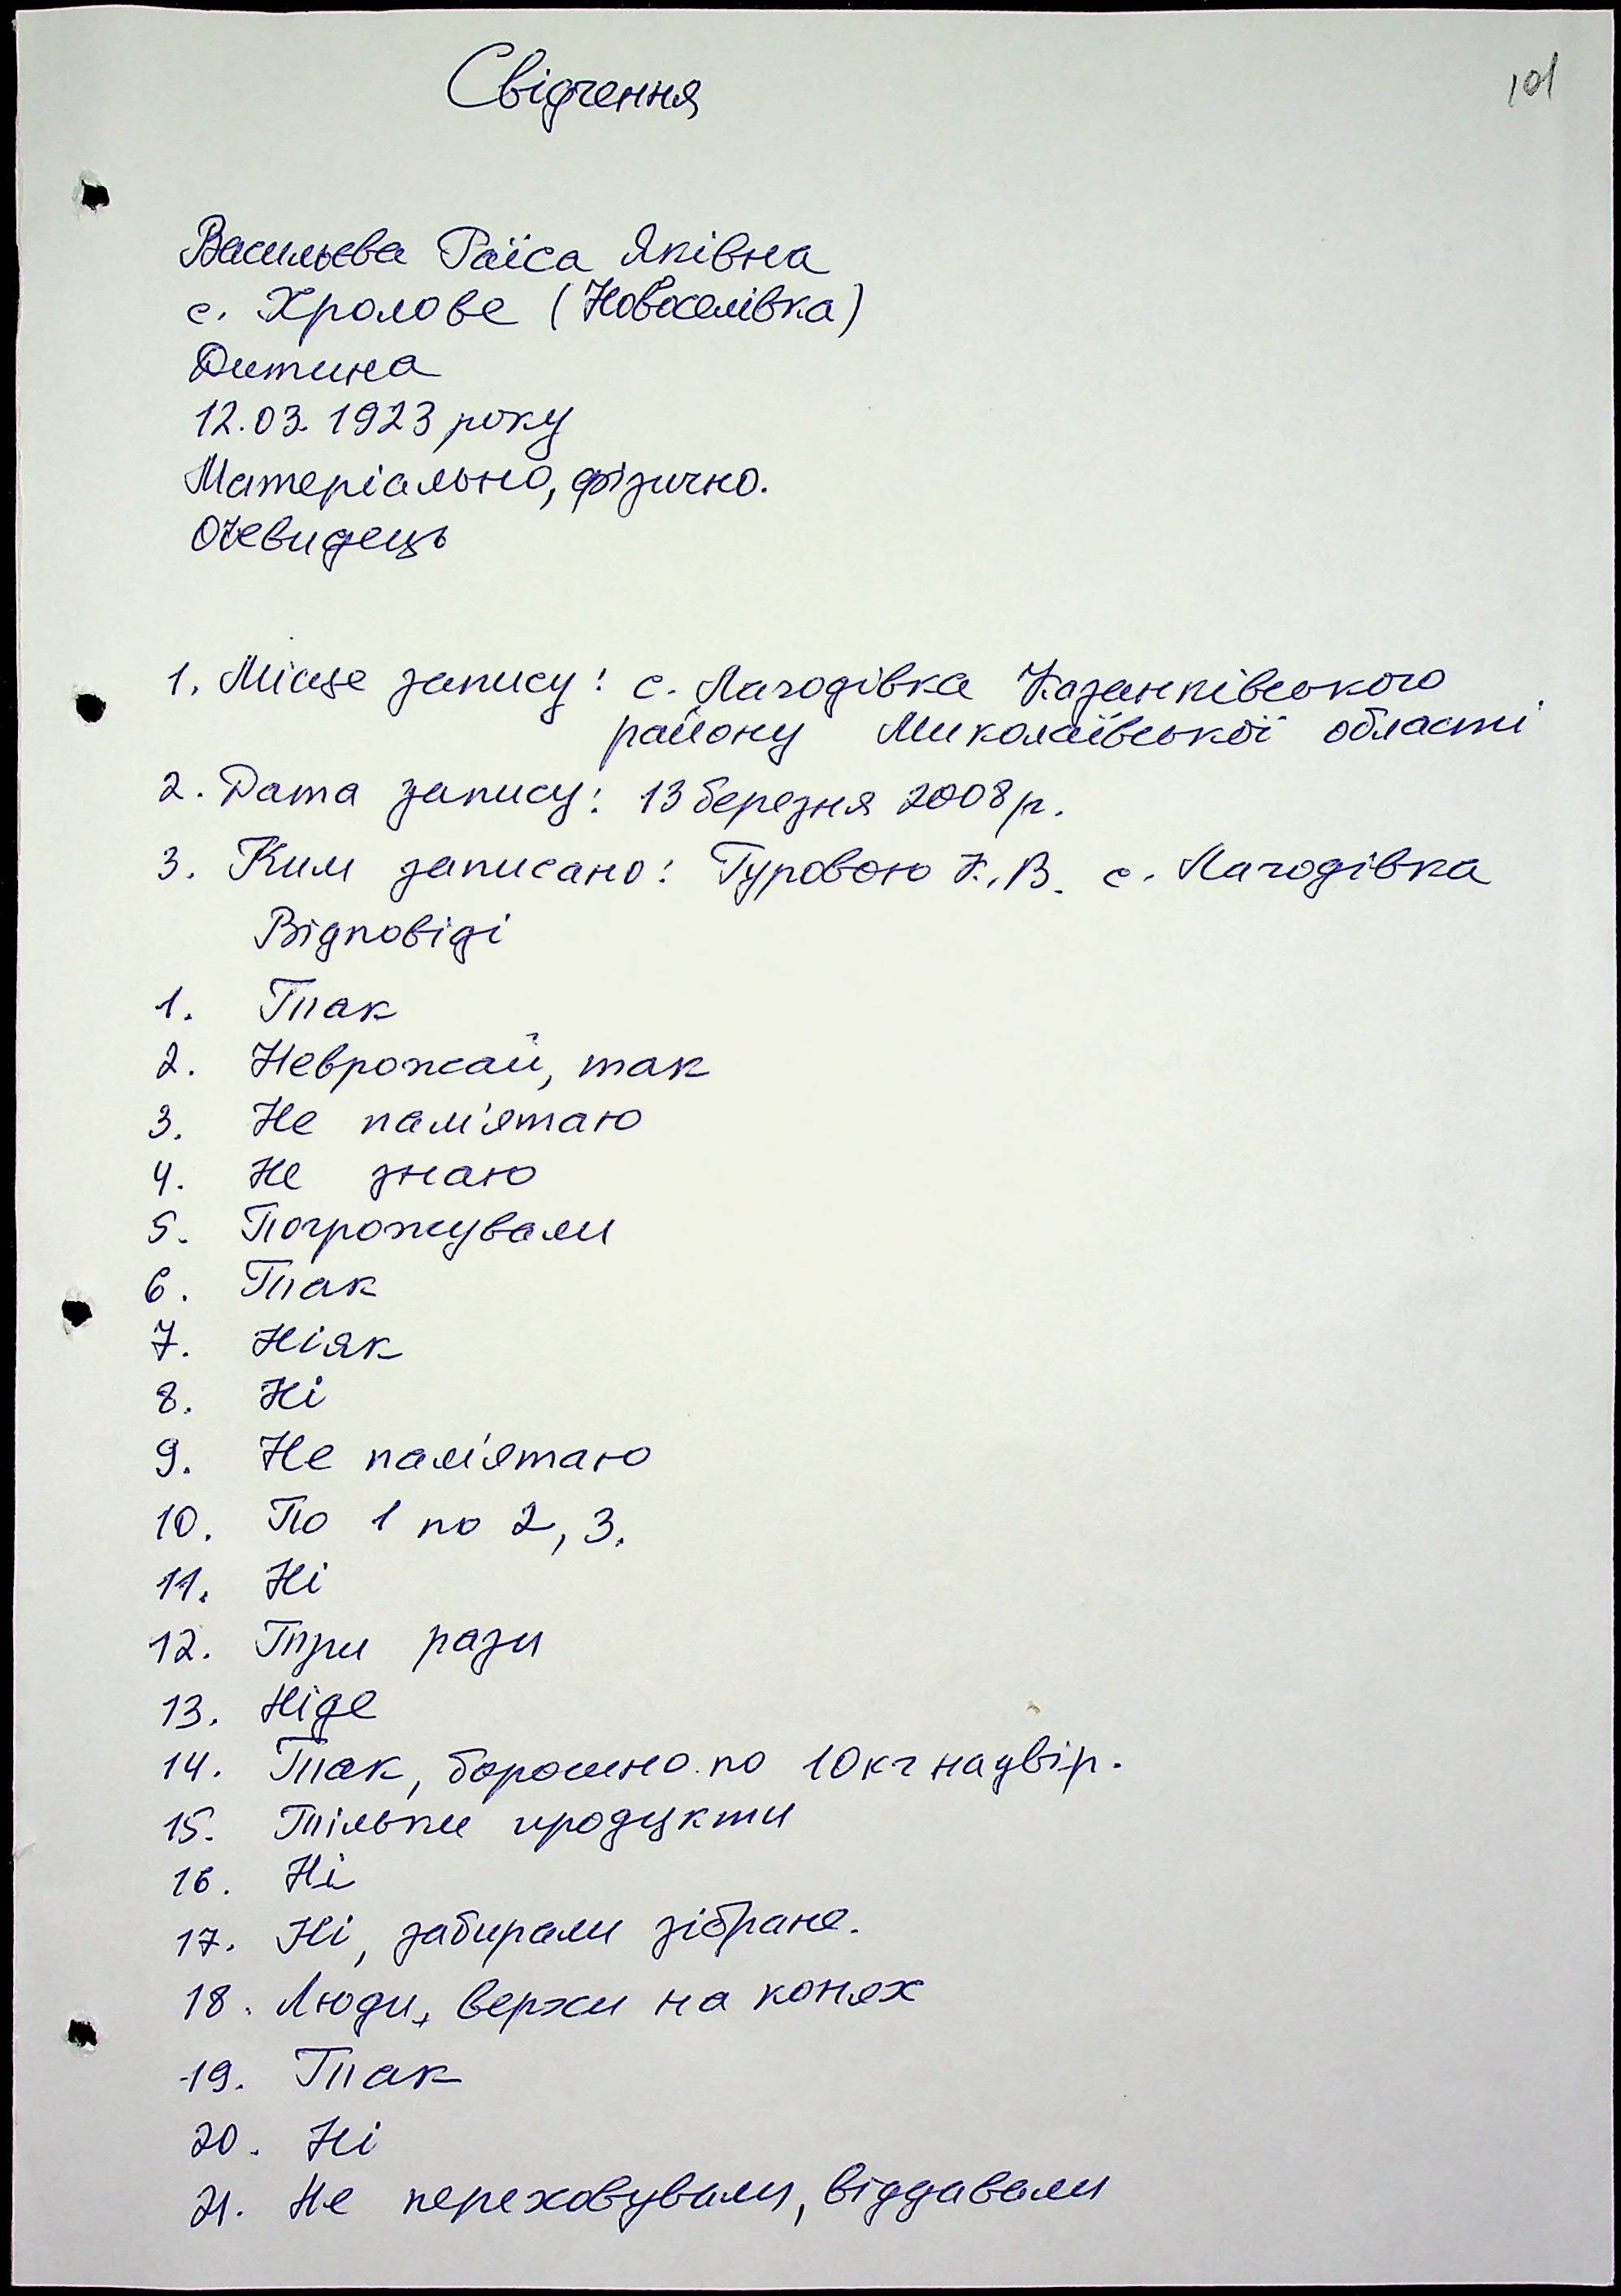 Свідчення
101
Васильєва Раїса Яківна
с. Хролове (Новоселівка)
Дитина
12.03.1923 року
Матеріально, фізично.
Очевидець
1. Місце запису: с. Лагодівка Казанківського
району Миколаївської області
2. Дата запису: 13 березня 2008 р.
3. Ким записано: Гуровою К. В. с. Лагодівка
Відповіді
1. Так
2. Неврожай, так
3. Не пам'ятаю
4. Не знаю
5. Погрожували
6. Так
7. Ніяк
8. Ні
9. Не пам'ятаю
10. По 1 по 2, 3.
11. Ні
12. Три рази
13. Ніде
14. Так, борошно по 10 кг на двір.
15. Тільки продукти
16. Ні
17. Ні, забирали зібране.
18. Люди, верхи на конях
19. Так
20. Ні
21. Не переховували, віддавали